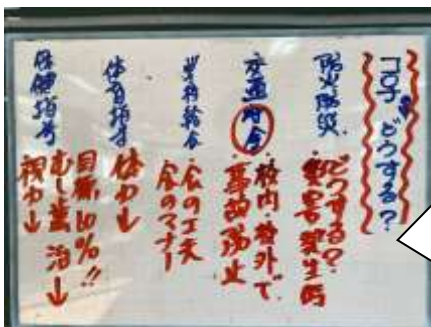 どうする？
防火防災
どうする？
災害発生時
交通安全
・校内・校外で
事故防止
給食
・食の工夫
食のマナー
体育指導
体力↓
保健指導
目標10%!!
むし歯 治↓
視力↓